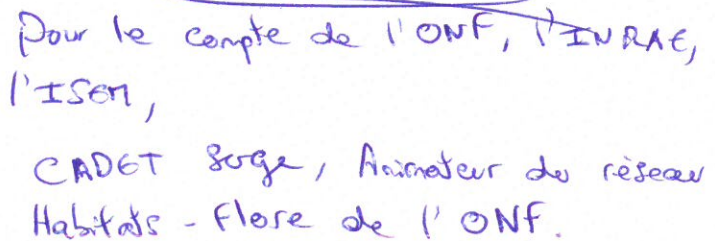 Pour le compte de l'ONF, l'INRAE,
l'ISEM,
CADET Serge, Animateur du réseau
Habitats - Flore de l'ONF.